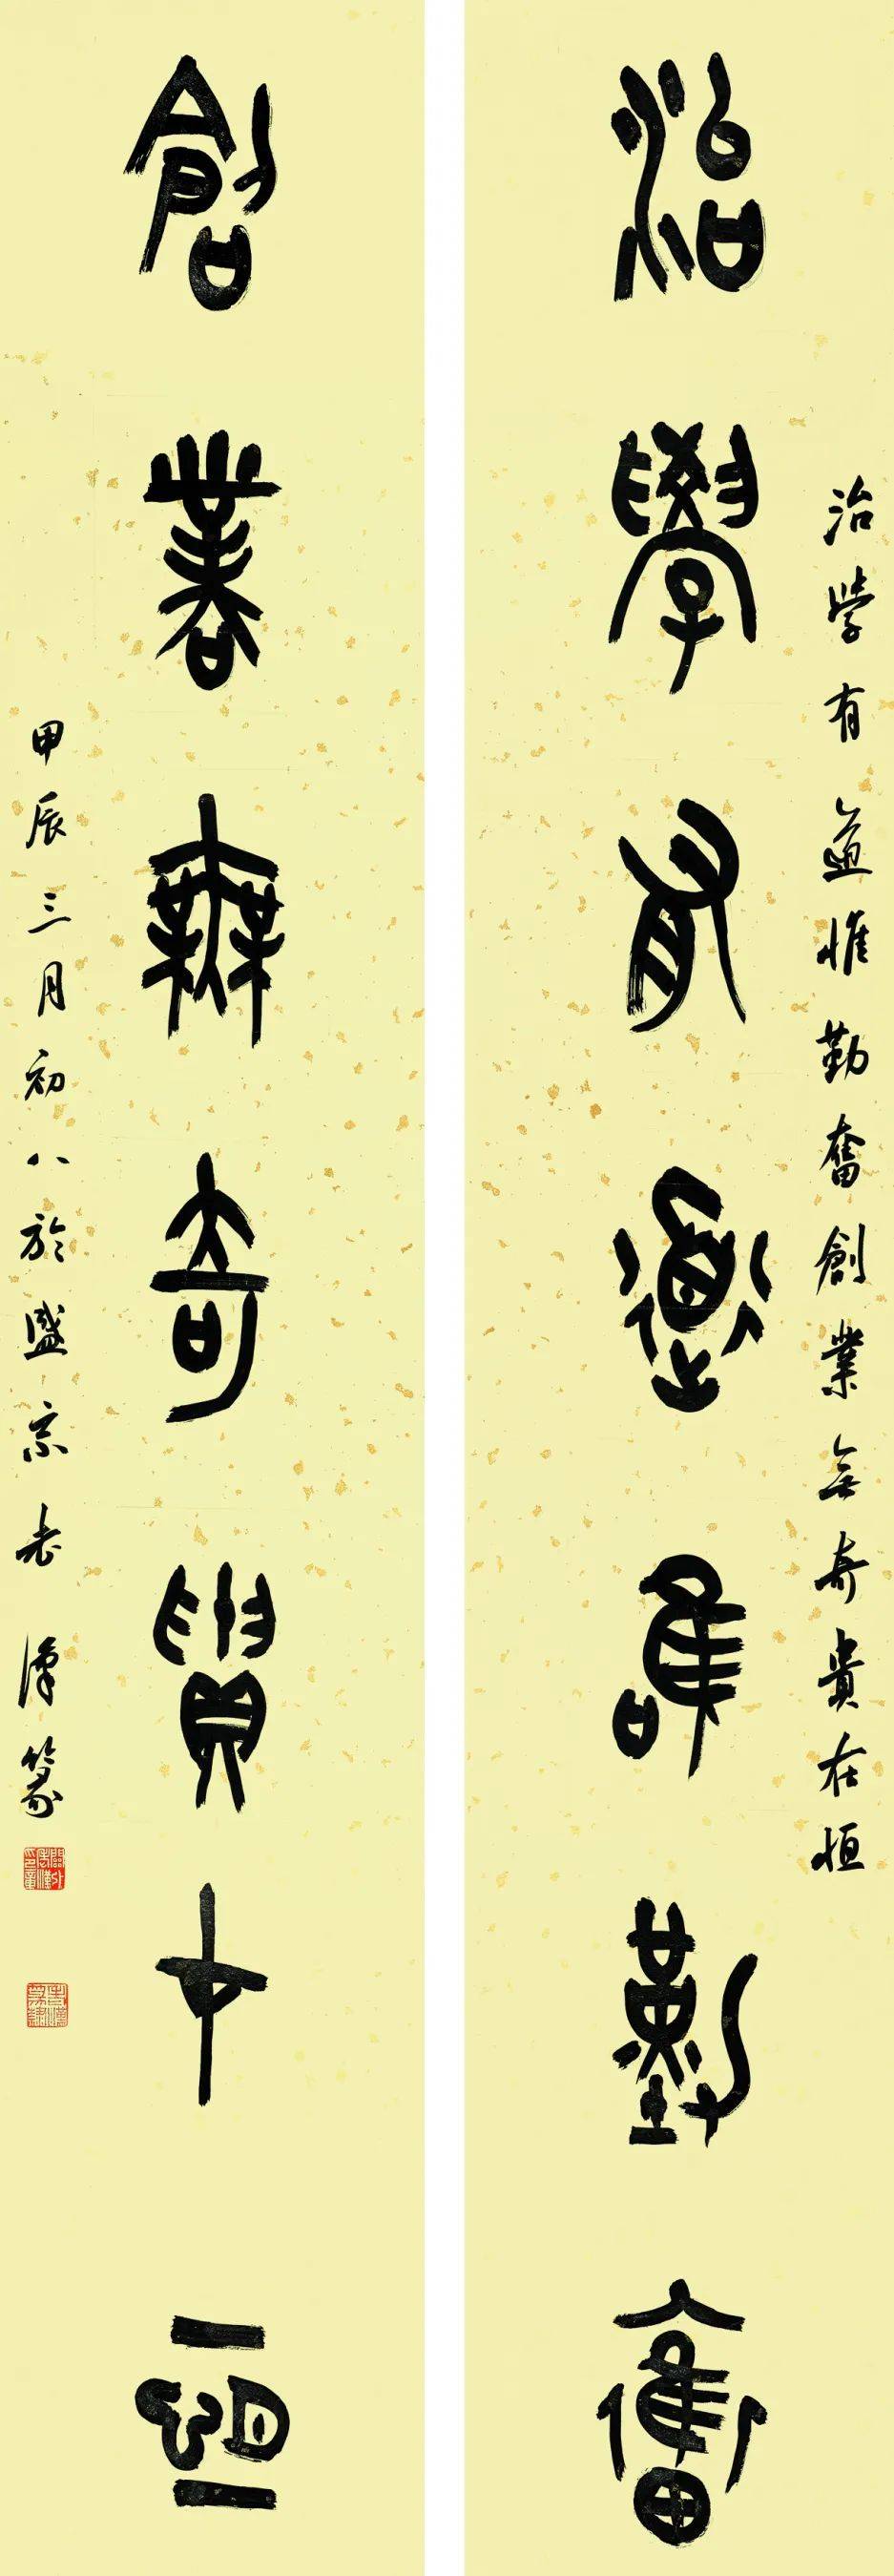 治學有道惟勤奮
治學有道惟勤奮創業無奇貴在恒
創業無奇貴在恒
甲辰三月初八於盛京 老漢篆